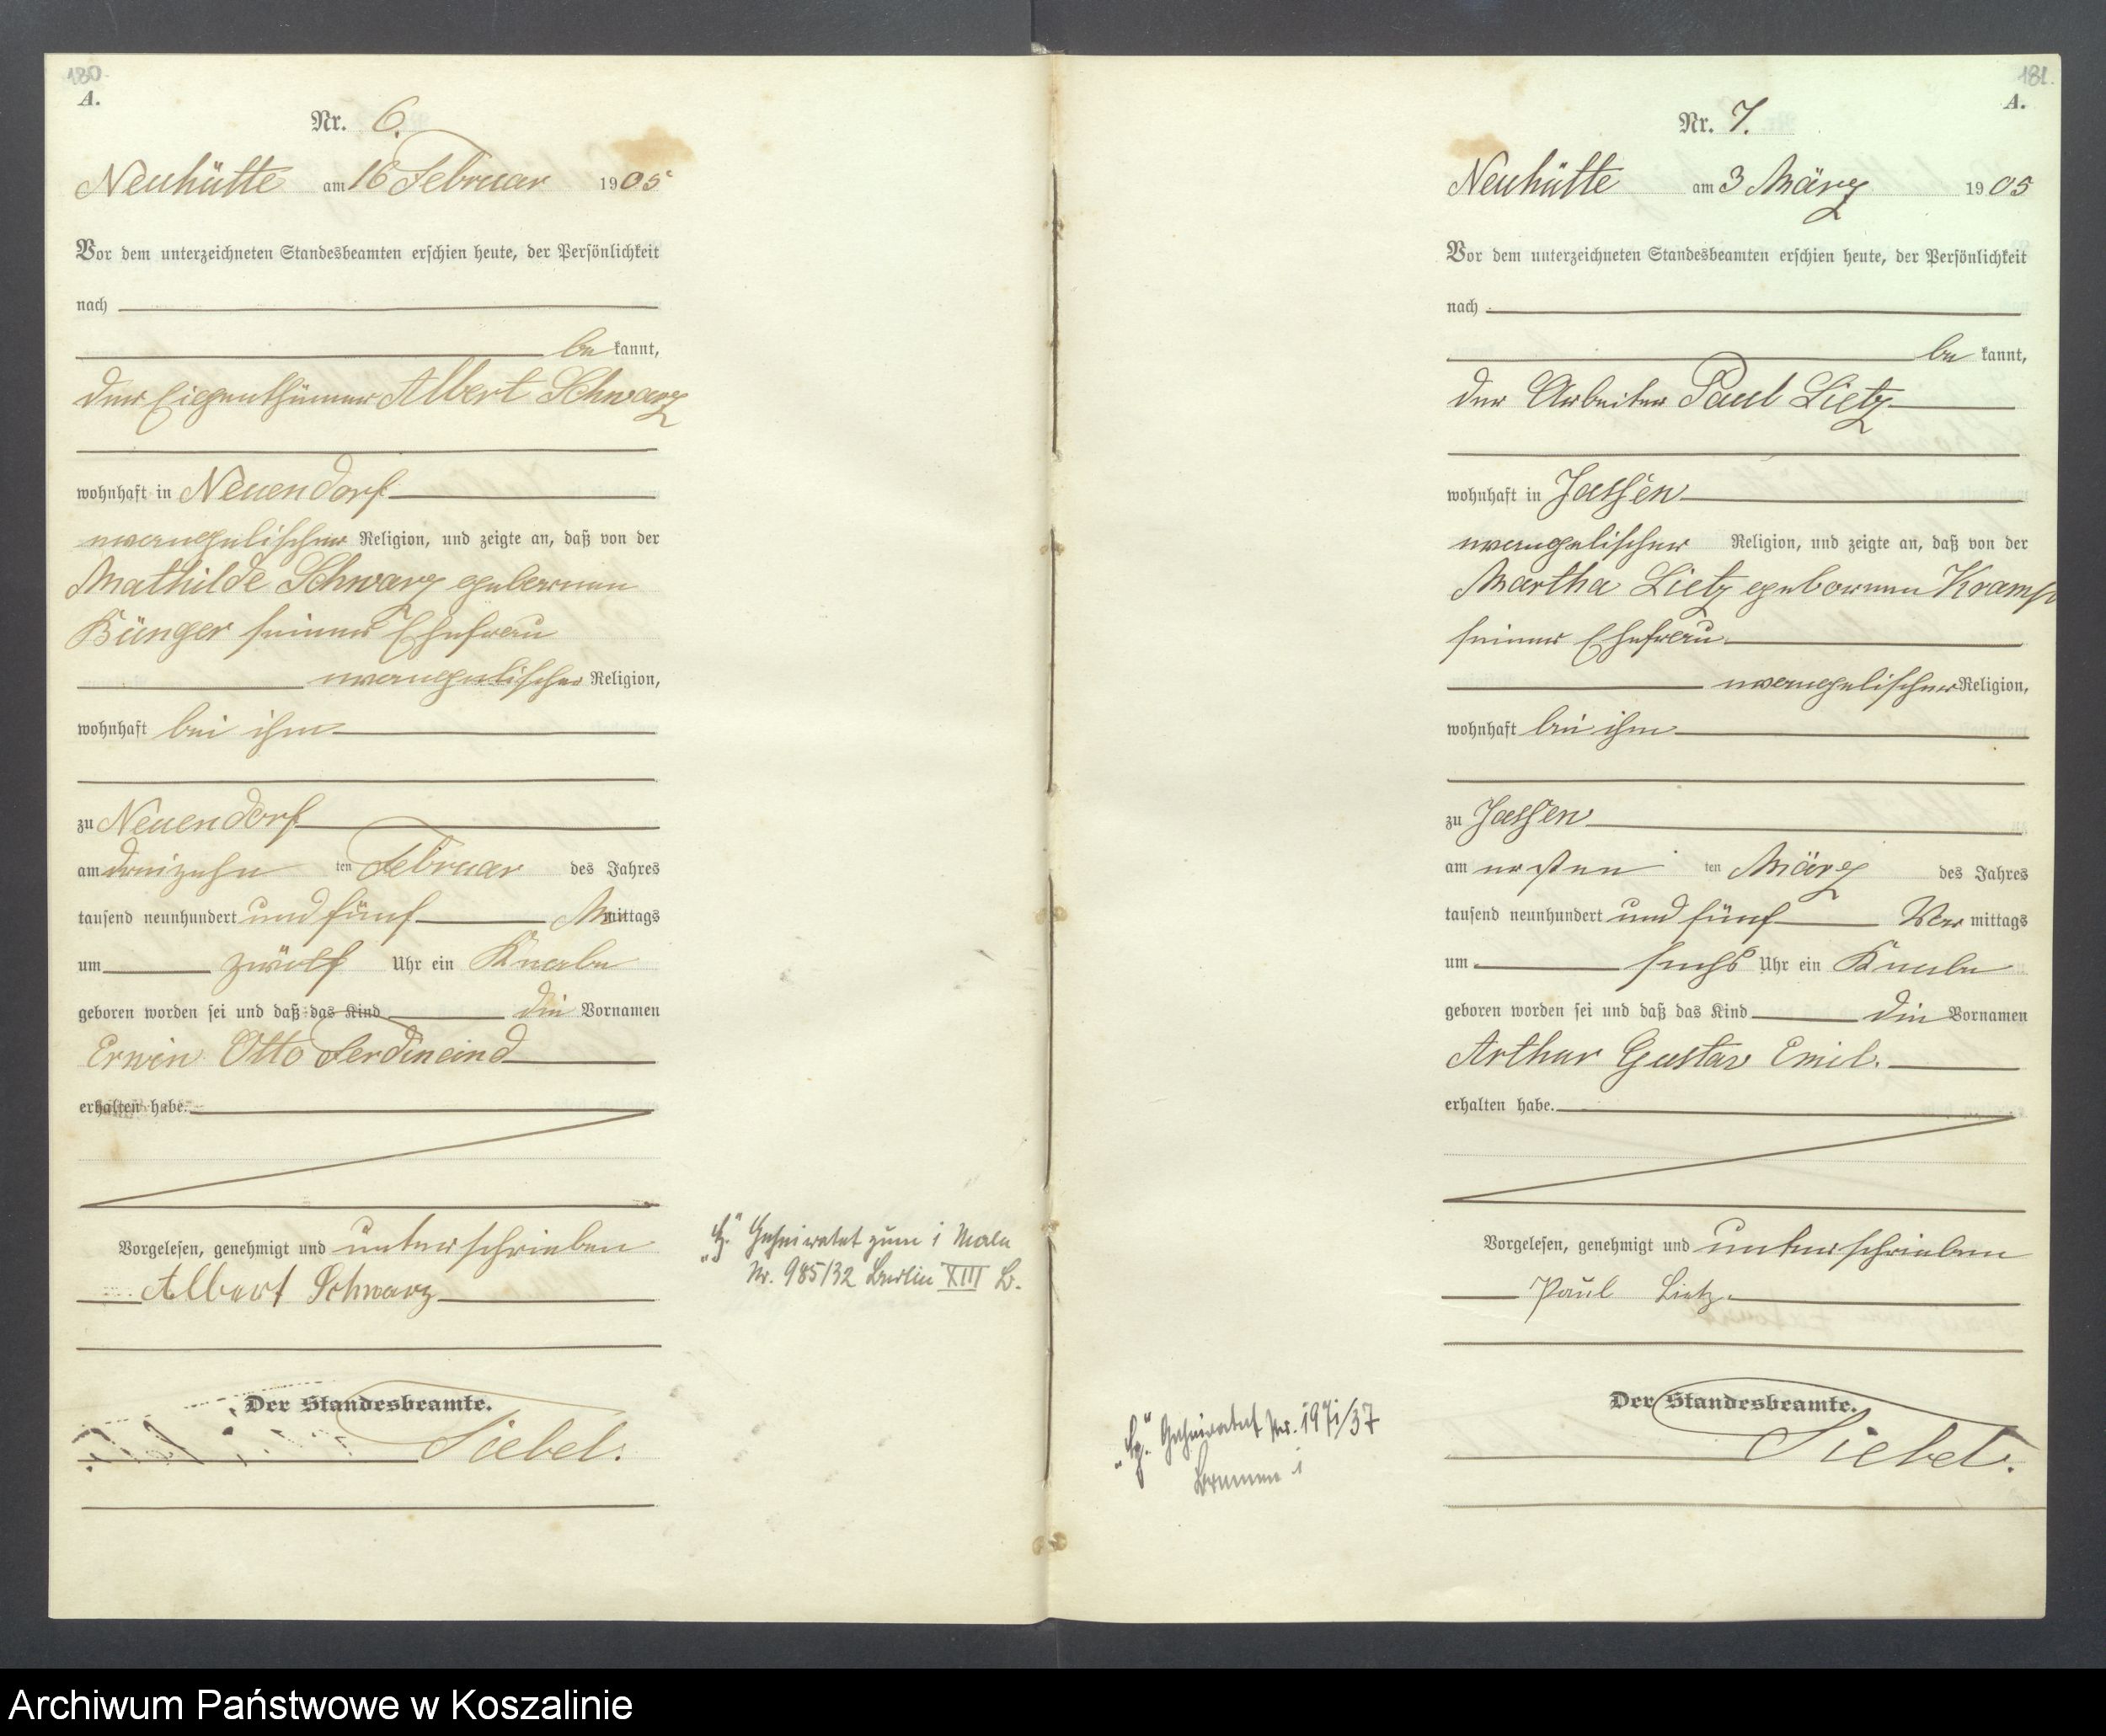 180.
A.
Nr. 6.
Neuhütte am 16 Februar 1905
Vor dem unterzeichneten Standesbeamten erschien heute, der Persönlichkeit
nach
be kannt,
der Eigenthümer Albert Schwarz
wohnhaft in Neuendorf
evangelischer Religion, und zeigte an, daß von der
Mathilde Schwarz geborenen
Bünger seiner Ehefrau
evangelischer Religion,
wohnhaft bei ihm
zu Neuendorf
am dreizehn ten Februar des Jahres
tausend neunhundert und fünf Mittags
um zwölf Uhr ein Knabe
geboren worden sei und daß das Kind die Vornamen
Erwin Otto Ferdinand
erhalten habe.
Vorgelesen, genehmigt und unterschrieben
Albert Schwarz
Der Standesbeamte.
Siebel.
Geheiratet zum 1 Male
Nr. 985/32 Berlin XIII B.
181.
A.
Nr. 7.
Neuhütte am 3 März 1905
Vor dem unterzeichneten Standesbeamten erschien heute, der Persönlichkeit
nach
be kannt,
der Arbeiter Paul Lietz
wohnhaft in Jassen
evangelischer Religion, und zeigte an, daß von der
Martha Lietz geborenen
seiner Ehefrau
evangelischer Religion,
wohnhaft bei ihm
zu Jassen
am ersten ten März des Jahres
tausend neunhundert und fünf Vor mittags
um sechs Uhr ein Knabe
geboren worden sei und daß das Kind die Vornamen
Arthur Gustav Emil.
erhalten habe.
Vorgelesen, genehmigt und unterschrieben
Paul Lietz.
Der Standesbeamte.
Siebel.
Geheiratet Nr. 191/37
Bremen 1
Archiwum Państwowe w Koszalinie